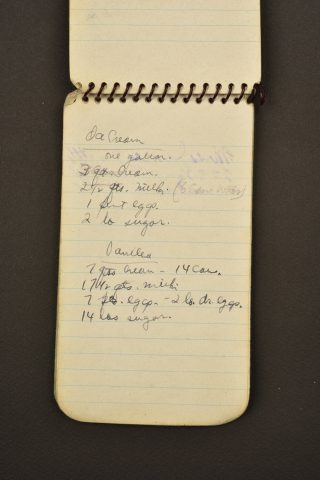 Ice Cream
one gallon.
3 qts. Cream.
2 1/2 pts. milk.
1 pint eggs.
2 lbs sugar.
Vanilla
7 Cream - 14 Cans.
17 1/2 pts. milk
7 pts. eggs. - 2 lb. dr. eggs.
14 lbs sugar.